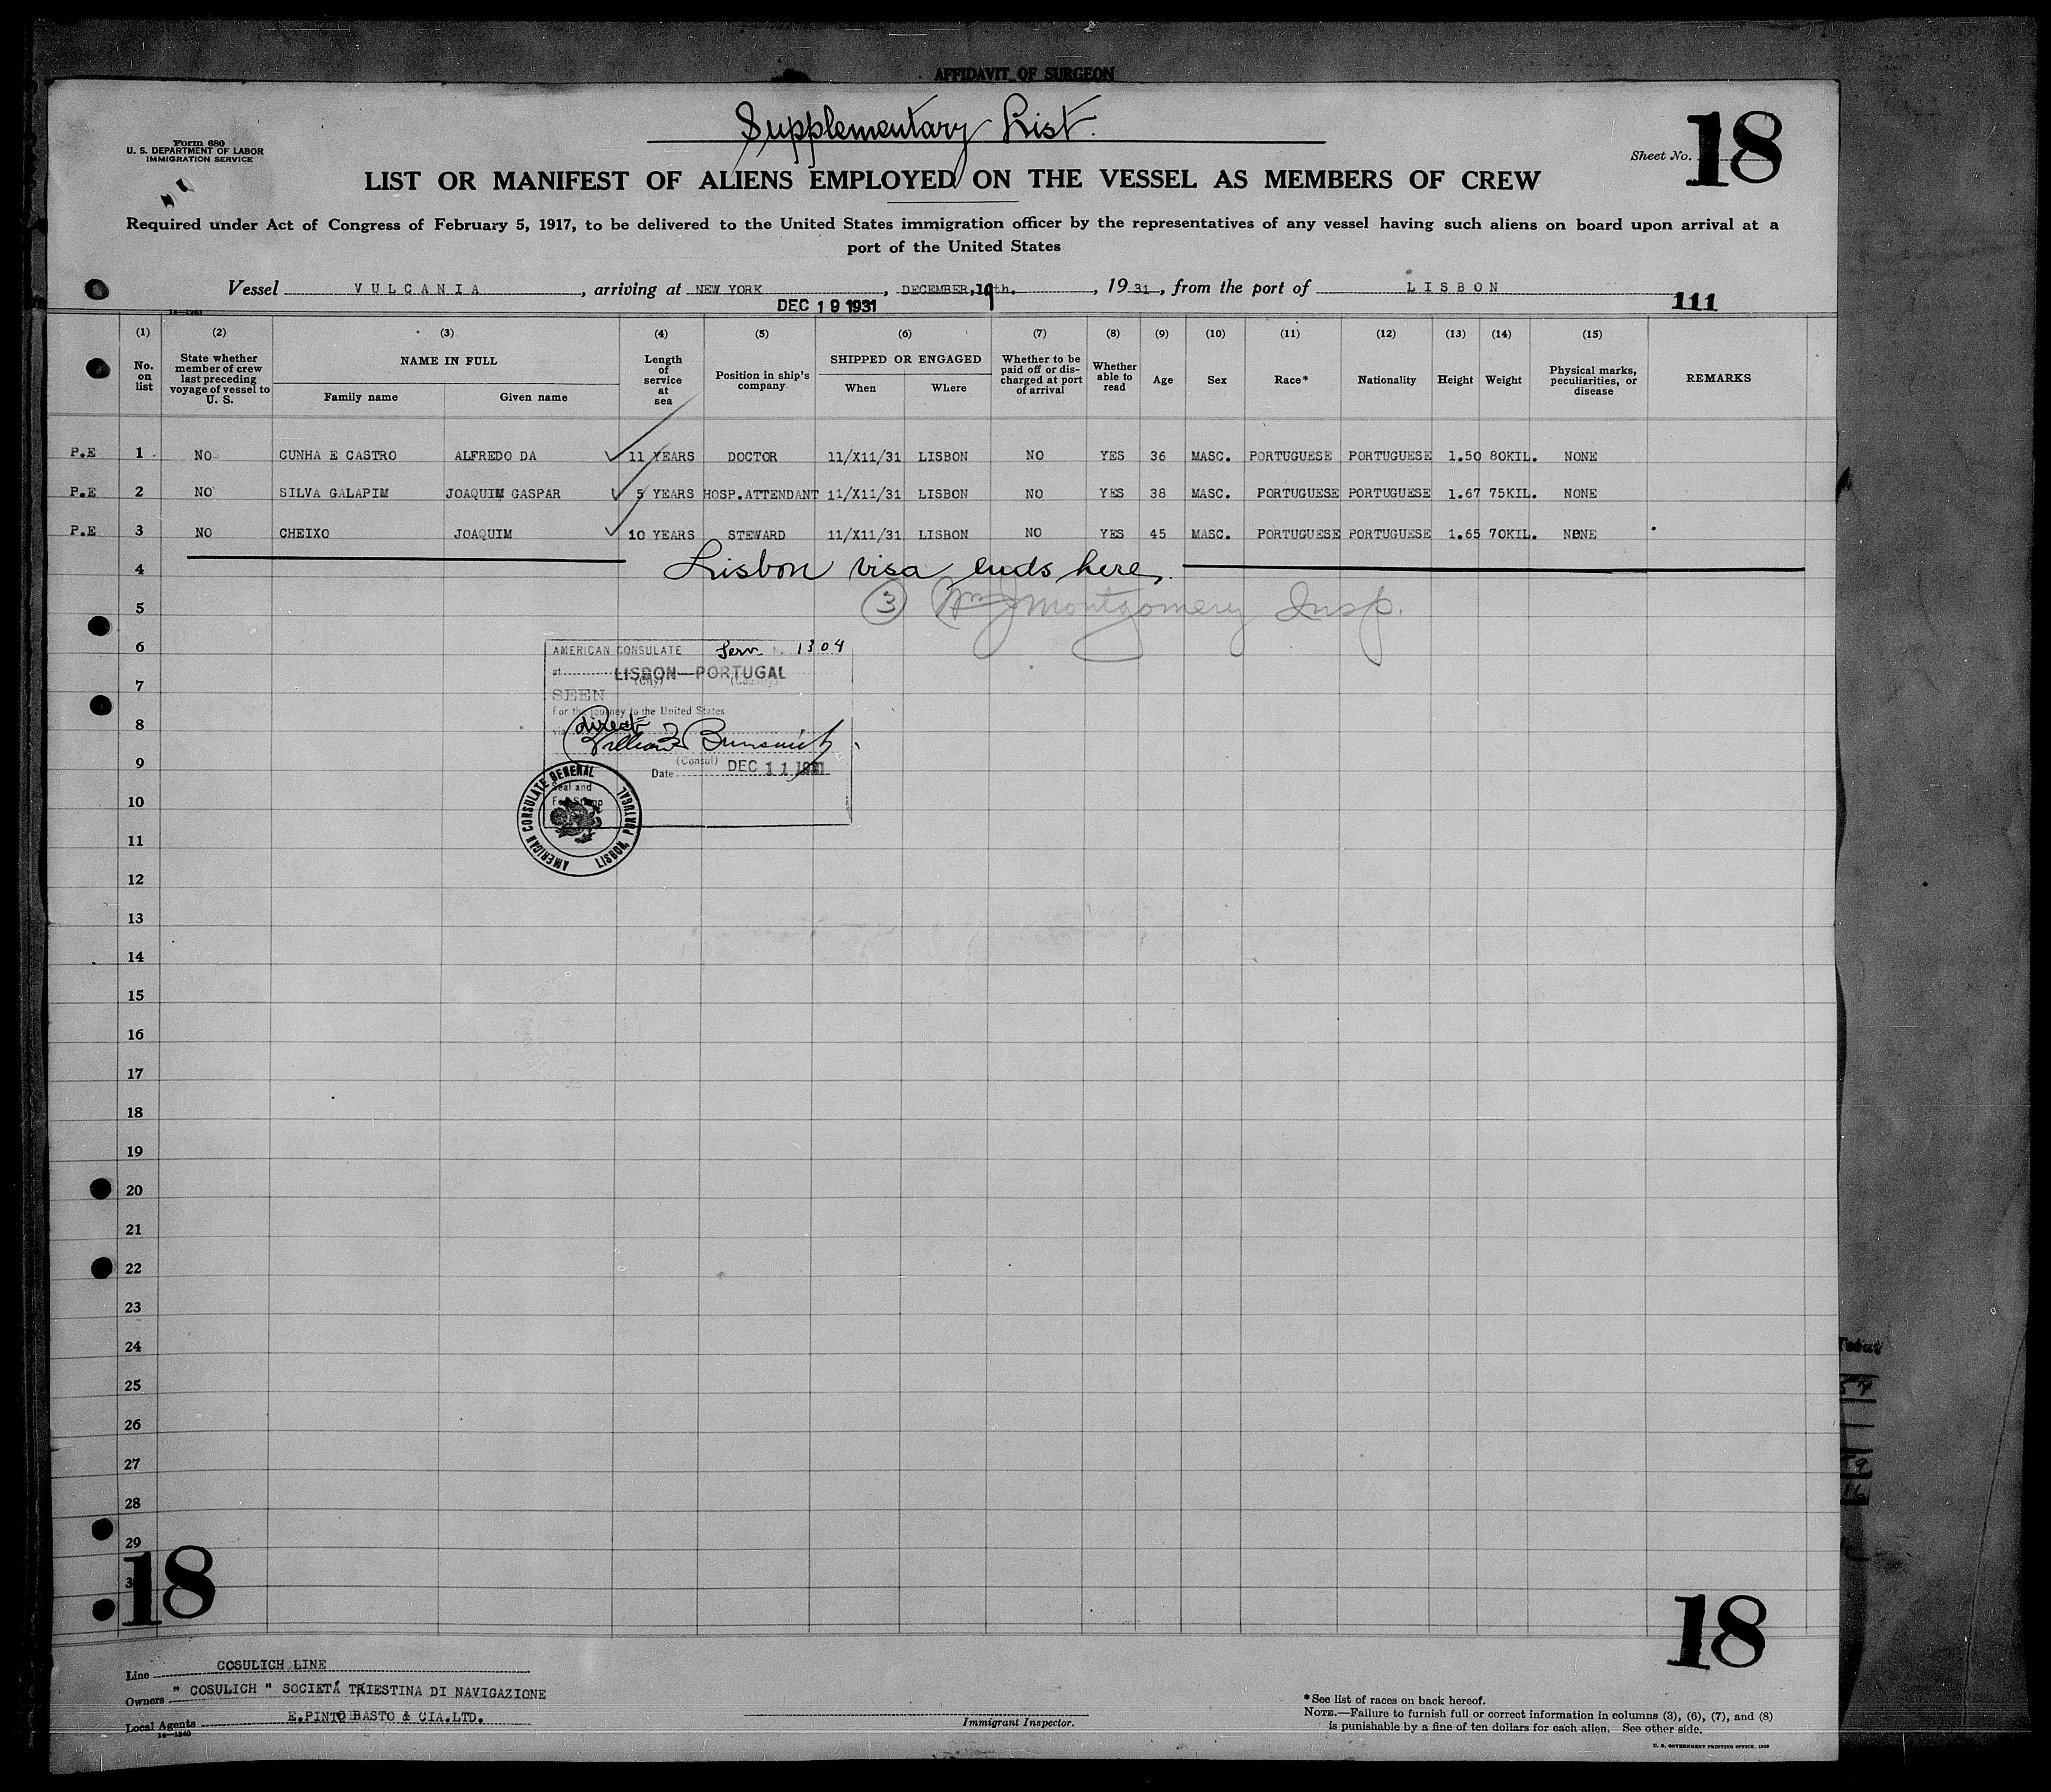 AFFIDAVIT OF SURGEON
Supplementary List.
Form 680
U. S. DEPARTMENT OF LABOR
IMMIGRATION SERVICE
Sheet No. 18
LIST OR MANIFEST OF ALIENS EMPLOYED ON THE VESSEL AS MEMBERS OF CREW
Required under Act of Congress of February 5, 1917, to be delivered to the United States immigration officer by the representatives of any vessel having such aliens on board upon arrival at a
port of the United States
Vessel VULCANIA, arriving at NEW YORK, DECEMBER, 19th., 1931, from the port of LISBON
DEC 19 1931
111
14—1240
(1) (2) (3) (4) (5) (6) (7) (8) (9) (10) (11) (12) (13) (14) (15)
No. on list
State whether member of crew last preceding voyage of vessel to U. S.
NAME IN FULL
Family name
Given name
Length of service at sea
Position in ship's company
SHIPPED OR ENGAGED
When
Where
Whether to be paid off or discharged at port of arrival
Whether able to read
Age
Sex
Race*
Nationality
Height
Weight
Physical marks, peculiarities, or disease
REMARKS
P.E 1 NO CUNHA E CASTRO ALFREDO DA 11 YEARS DOCTOR 11/X11/31 LISBON NO YES 36 MASC. PORTUGUESE PORTUGUESE 1.50 80KIL. NONE
P.E 2 NO SILVA GALAPIM JOAQUIM GASPAR 5 YEARS HOSP.ATTENDANT 11/X11/31 LISBON NO YES 38 MASC. PORTUGUESE PORTUGUESE 1.67 75KIL. NONE
P.E 3 NO CHEIXO JOAQUIM 10 YEARS STEWARD 11/X11/31 LISBON NO YES 45 MASC. PORTUGUESE PORTUGUESE 1.65 70KIL. NONE
4 Lisbon visa ends here
5 3 Montgomery Insp.
6
AMERICAN CONSULATE Serv. No. 1304
at LISBON—PORTUGAL
(City) (Country)
7
SEEN
For the journey to the United States
8
via direct
William Brunswick
(Consul)
9
Date DEC 11 1931
Seal and
Fee Stamp
AMERICAN CONSULATE GENERAL LISBON, PORTUGAL
10
11
12
13
14
15
16
17
18
19
20
21
22
23
24
25
26
27
28
29
18
18
Line COSULICH LINE
Owners " COSULICH " SOCIETÁ TRIESTINA DI NAVIGAZIONE
Local Agents E.PINTO BASTO & CIA.LTD.
14—1240
Immigrant Inspector.
*See list of races on back hereof.
NOTE.—Failure to furnish full or correct information in columns (3), (6), (7), and (8)
is punishable by a fine of ten dollars for each alien. See other side.
U. S. GOVERNMENT PRINTING OFFICE